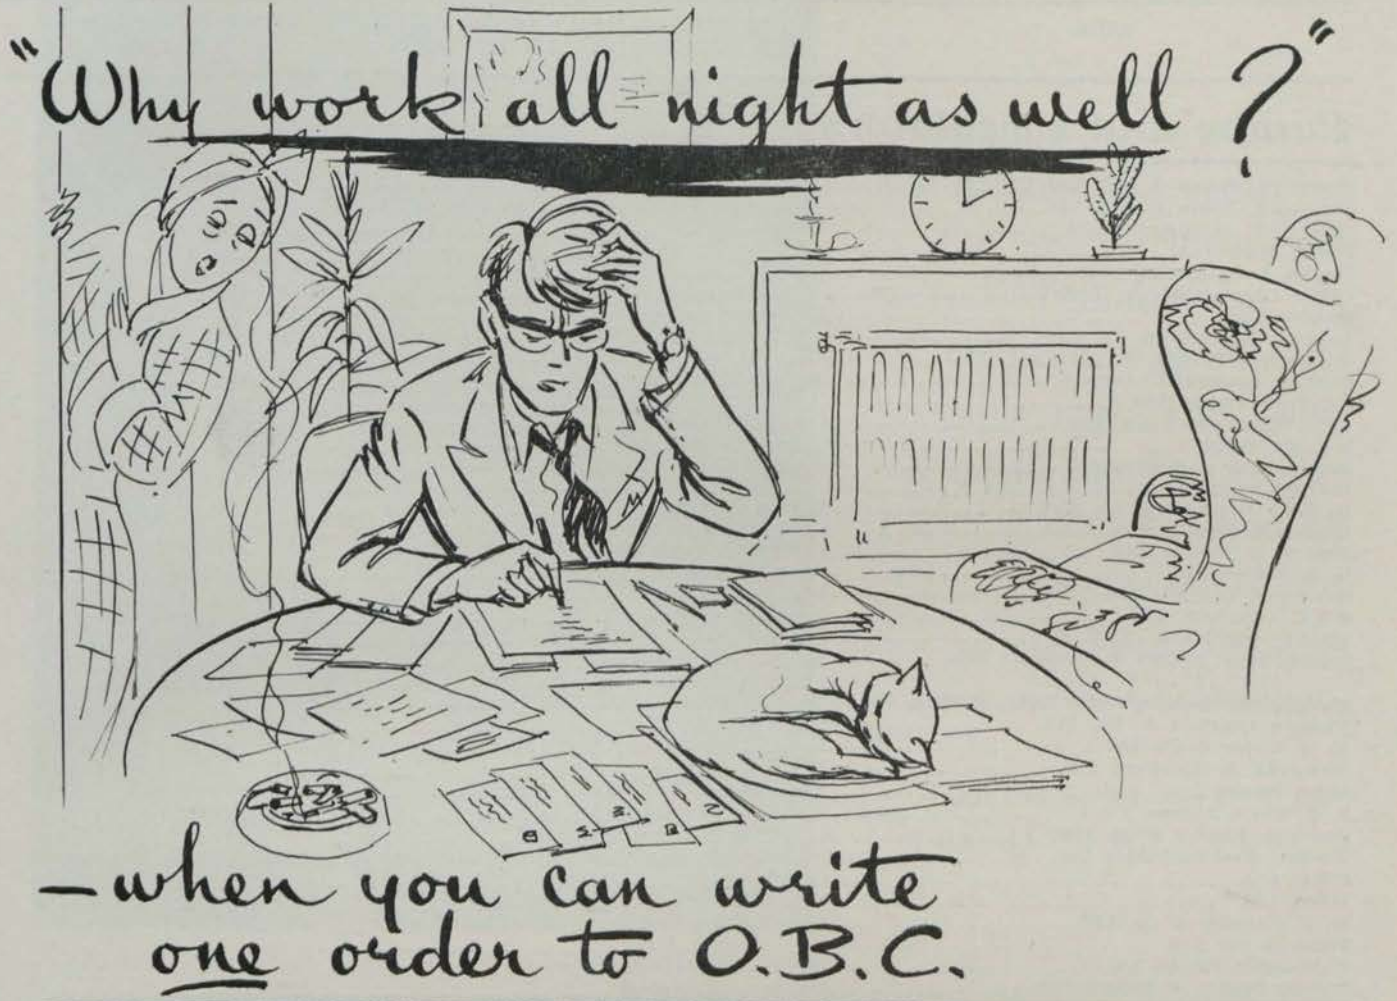 "Why work all night as well?"
—when you can write
one order to O.B.C.